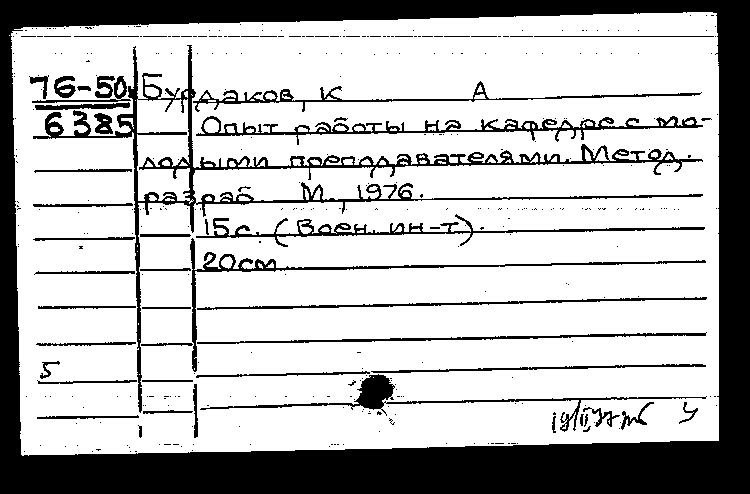 76-50
6385
Бурдаков, К А
Опыт работы на кафедре с мо-
лодыми преподавателями. Метод.
разраб. М., 1976.
15с. (Воен. ин-т).
20см
5